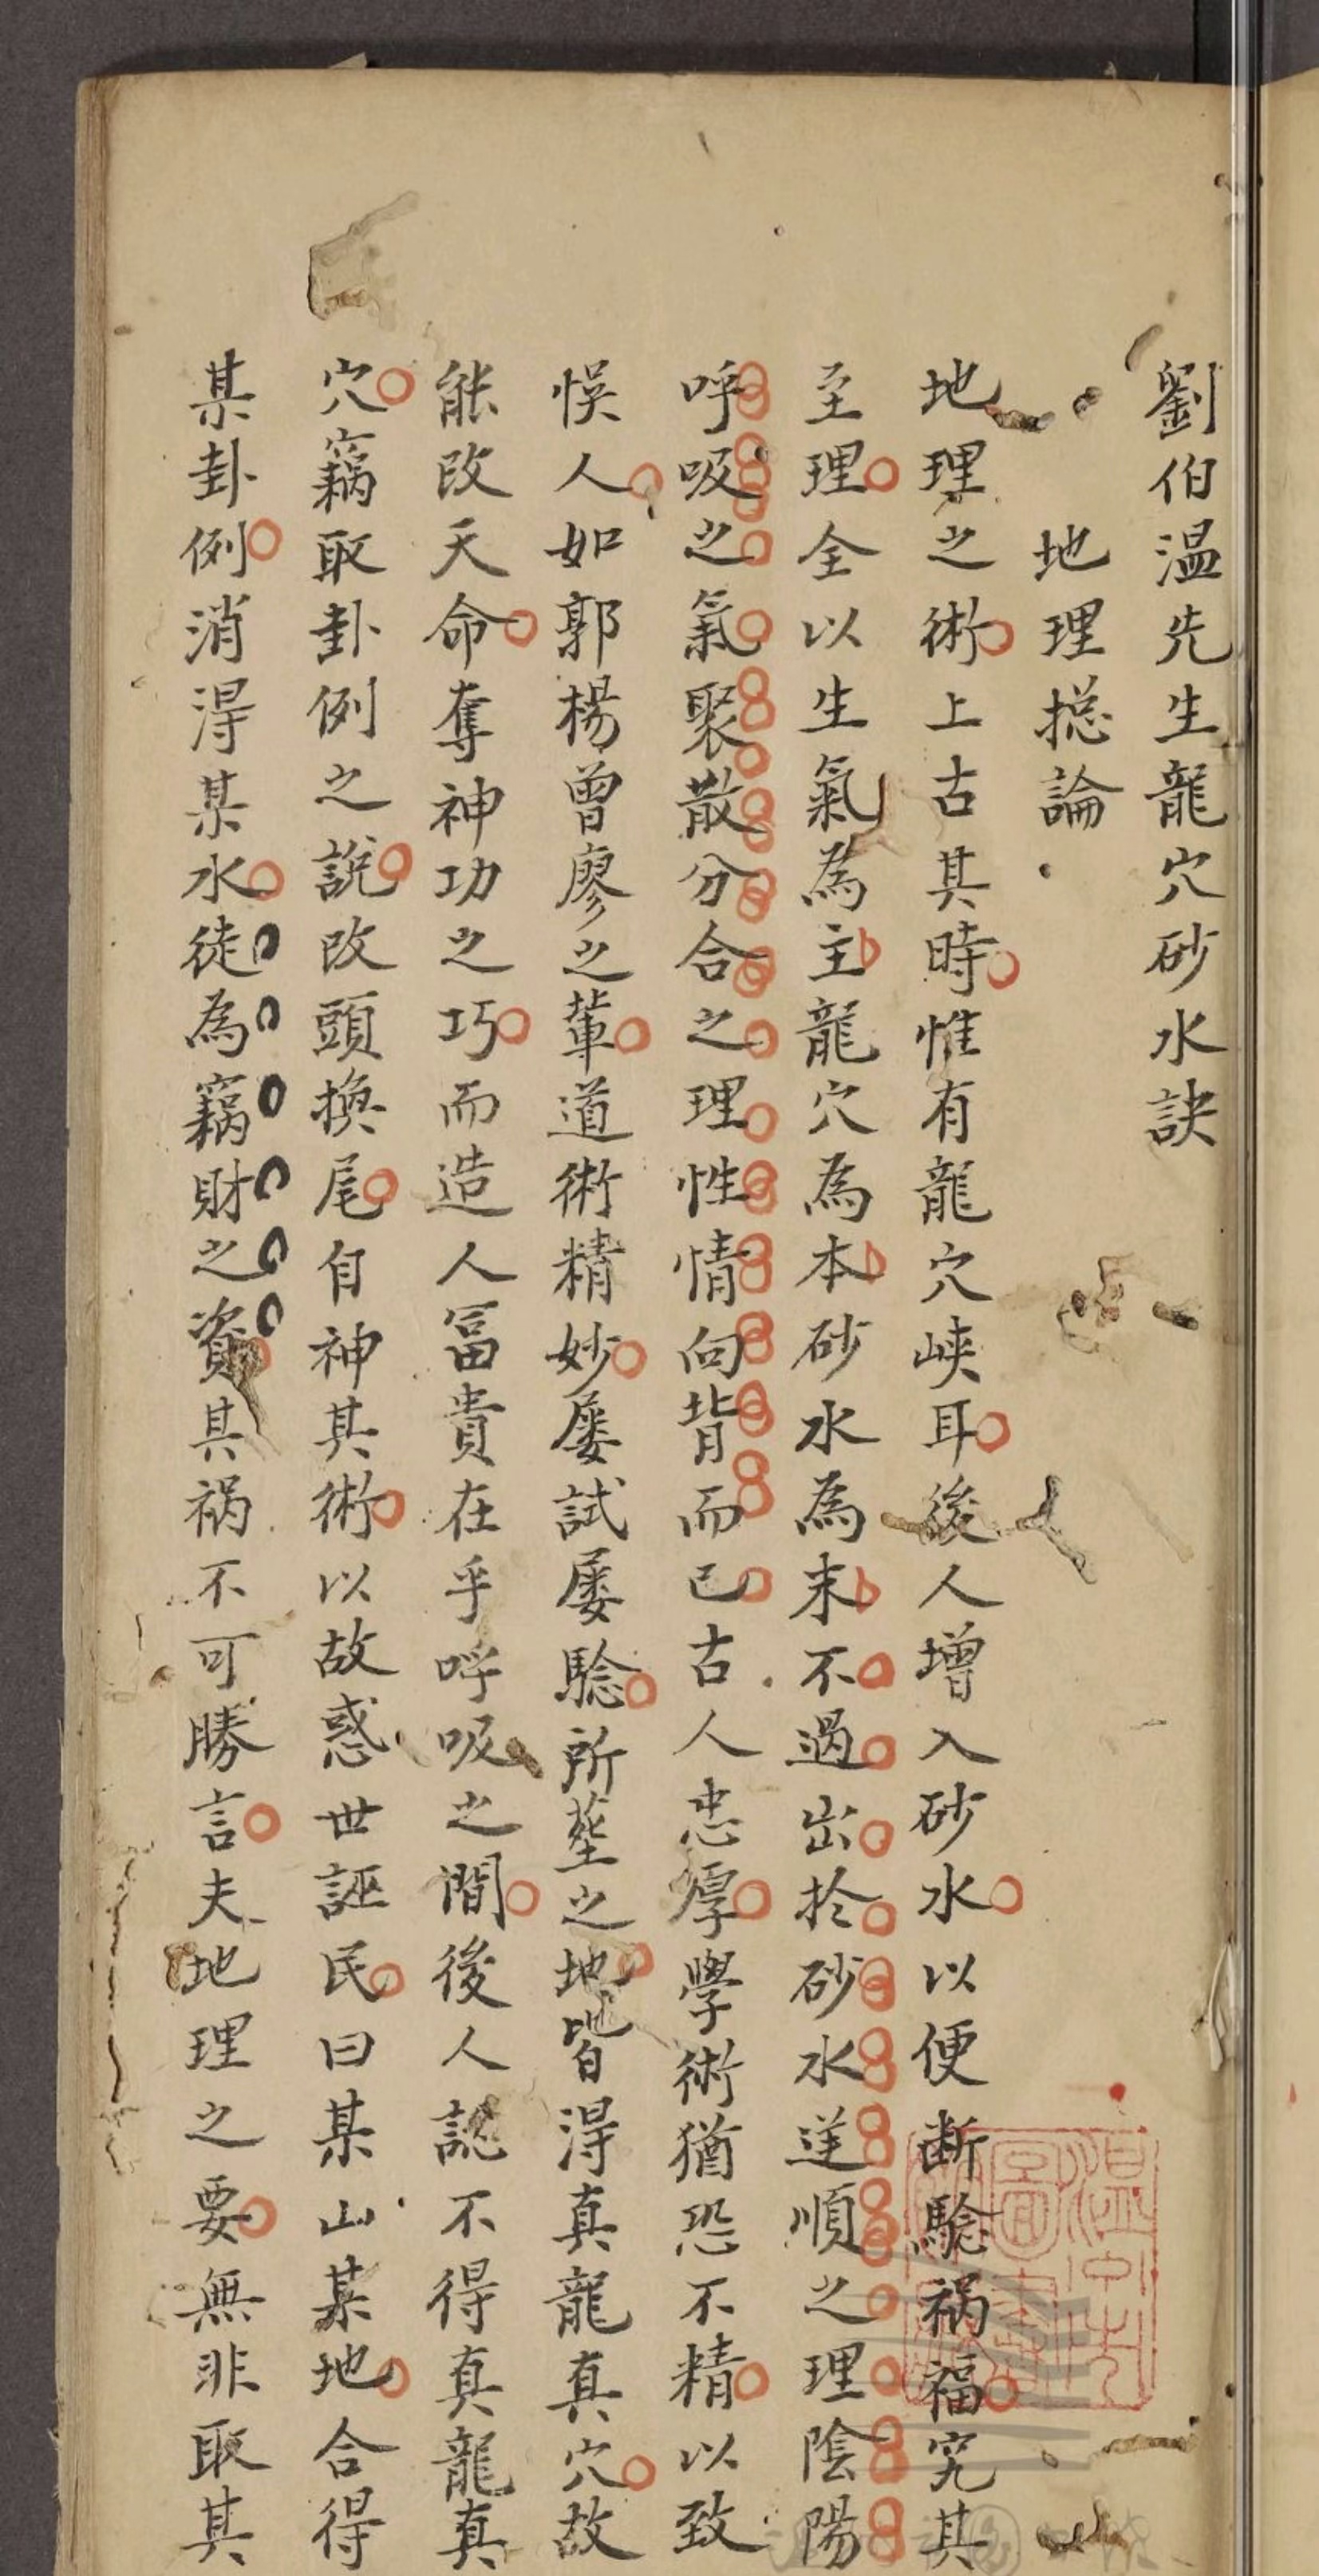 劉伯温先生龍穴砂水訣
地理搃論
地理之術上古其時惟有龍穴峽耳後人增入砂水以便断騐祸福究其
至理全以生氣為主龍穴為本砂水為末不過出於砂水逆順之理陰陽
呼吸之氣聚散分合之理性情向背而已古人忠厚學術猶恐不精以致
悮人如郭楊曾廖之輩道術精妙屡試屡騐所塟之地皆淂真龍真穴故
能改天命奪神功之巧而造人冨貴在乎呼吸之間後人認不得真龍真
穴竊取卦例之說改頭換尾自神其術以故惑世誣民曰某山某地合得
某卦例消淂某水徒為竊財之資其祸不可勝言夫地理之要無非取其